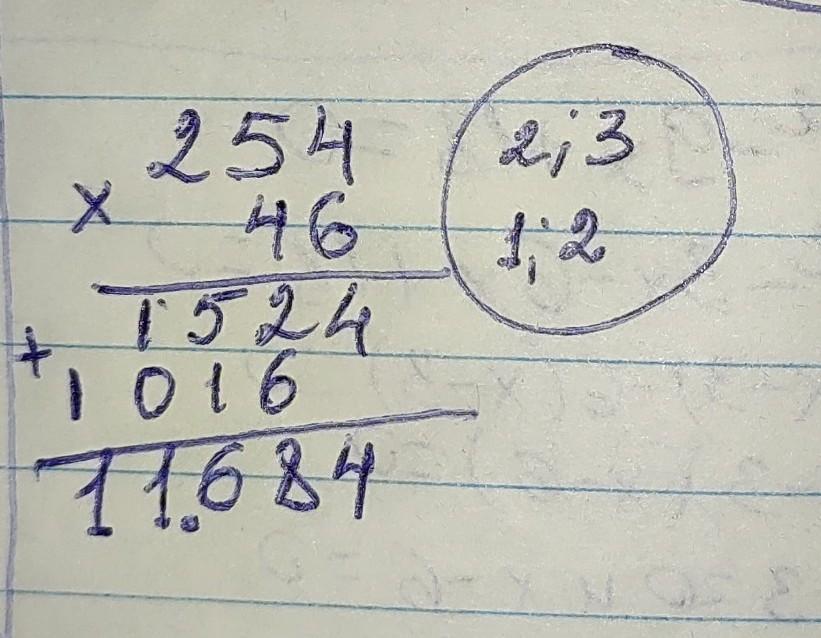 254
2;3
x 46
1;2
1524
+
1016
11.684